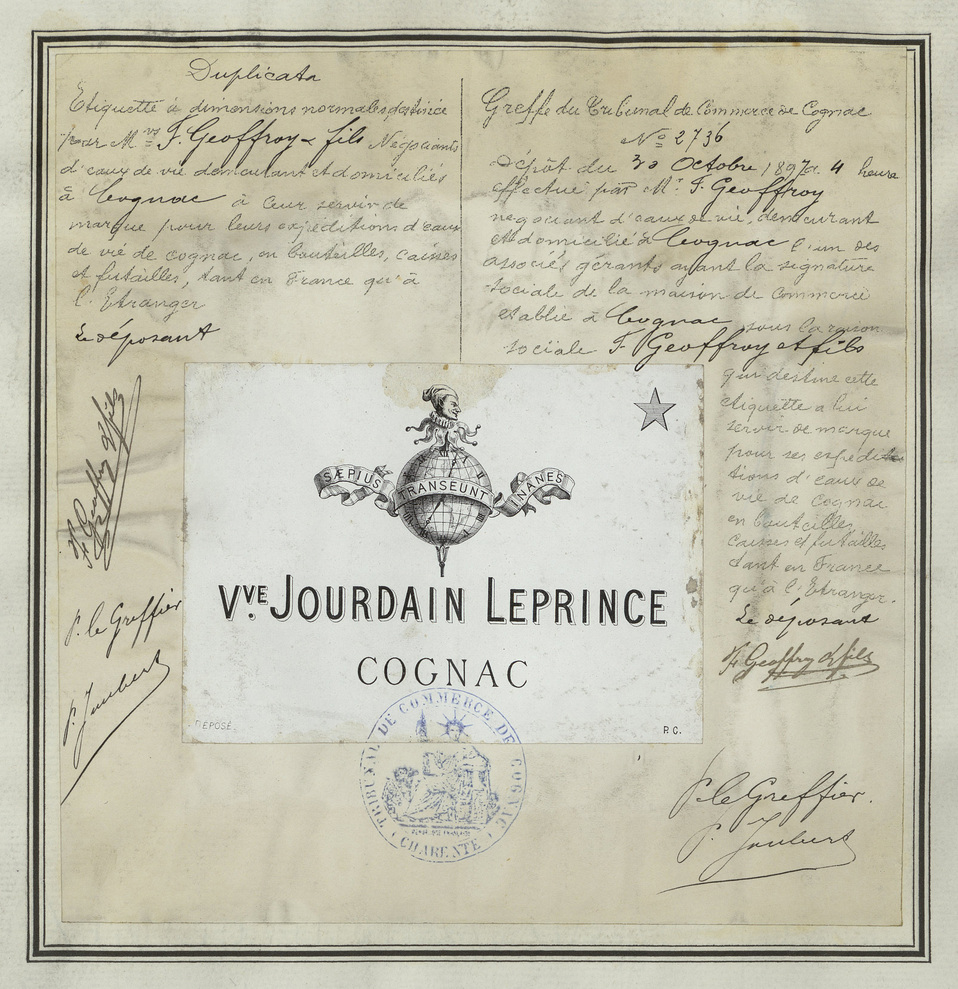 Duplicata
Etiquette à dimensions normales destinée
par M.rs F. Geoffroy & fils Négociants
d'eaux de vie demeurant et domiciliés
à Cognac à leur servir de
marque pour leurs expéditions d'eaux
de vie de cognac, en bouteilles, caisses
et futailles, tant en France qu'à
l'Etranger
Le déposant
F. Geoffroy & fils
P. le Greffier
P. Joubert
Greffe du Tribunal de Commerce de Cognac
No 2736
Dépôt du 30 Octobre 1897 à 4 heure
effectué par Mr. F. Geoffroy
négociant d'eaux de vie, demeurant
et domicilié à Cognac l'un des
associés gérants ayant la signature
sociale de la maison de Commerce
établie à Cognac sous la raison
sociale F. Geoffroy et fils
qui destine cette
étiquette à lui
servir de marque
pour ses expédi
tions d'eaux de
vie de cognac
en bouteilles,
caisses et futailles
tant en France
qu'à l'Etranger.
Le déposant
F. Geoffroy & fils
P. le Greffier.
P. Joubert
SÆPIUS TRANSEUNT INANES
VVE. JOURDAIN LEPRINCE
COGNAC
DÉPOSÉ
P.C.
TRIBUNAL DE COMMERCE DE COGNAC
(CHARENTE)